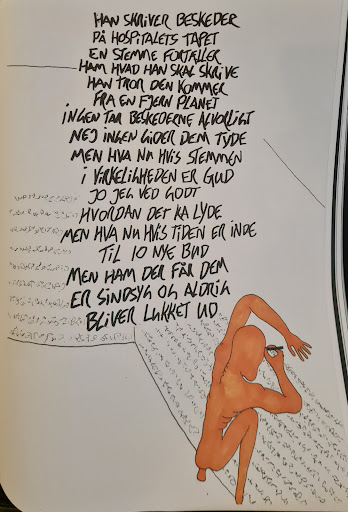 HAN SKRIVER BESKEDER
PÅ HOSPITALETS TAPET
EN STEMME FORTÆLLER
HAM HVAD HAN SKAL SKRIVE
HAN TROR DEN KOMMER
FRA EN FJERN PLANET
INGEN TAR BESKEDERNE ALVORLIGT
NEJ INGEN GIDER DEM TYDE
MEN HVA NU HVIS STEMMEN
I VIRKELIGHEDEN ER GUD
JO JEG VED GODT
HVORDAN DET KA LYDE
MEN HVA NU HVIS TIDEN ER INDE
TIL 10 NYE BUD
MEN HAM DER FÅR DEM
ER SINDSYG OG ALDRIG
BLIVER LUKKET UD